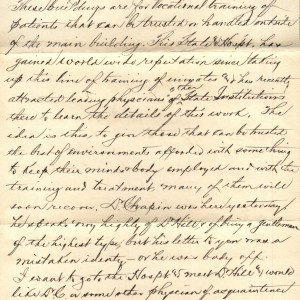 These buildings are for vocational training of
patients that can be trusted or handled outside
of the main building. This State Hospt. has
gained world wide reputation since taking
up this line of training of inmates & has recently
attracted leading physicians of other State Institutions
there to learn the details of this work. The
idea is this; to give those that can be trusted
the best of environments afforded with something
to keep their minds & body employed and with the
training and treatment, many of them will
soon recover. Dr Chapin was here yesterday
he speaks very highly of Dr Hill & of being a gentleman
of the highest type, but his letter to you was a
mistaken identy - or he was badly off
I want to go to the Hospt & meet Dr Hill & would
like Dr C. or some other physician of acquaintence